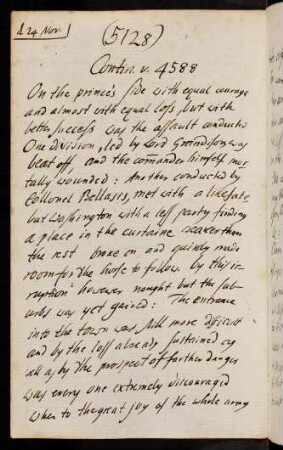 24 Nov.
(5128)
Contin. v. 4588
On the prince's side with equal courage
and almost with equal loss, but with
better success was the assault conducted
One division, led by Lord Grandison, was
beat off, and the comander himself mor
tally wounded: Another conducted by
Collonel Bellasis, met with a like fate
but Washington with a less party finding
a place in the curtaine weaker then
the rest brake on and quicly made
room for the horse to follow. by this ir
ruption however nought but the sub
urbs was yet gained: The entrance
into the town was still more difficult
and by the loss already sustained as
all as by the prospect of farther danger
was every one extremely discouraged
when to the great joy of the whole army